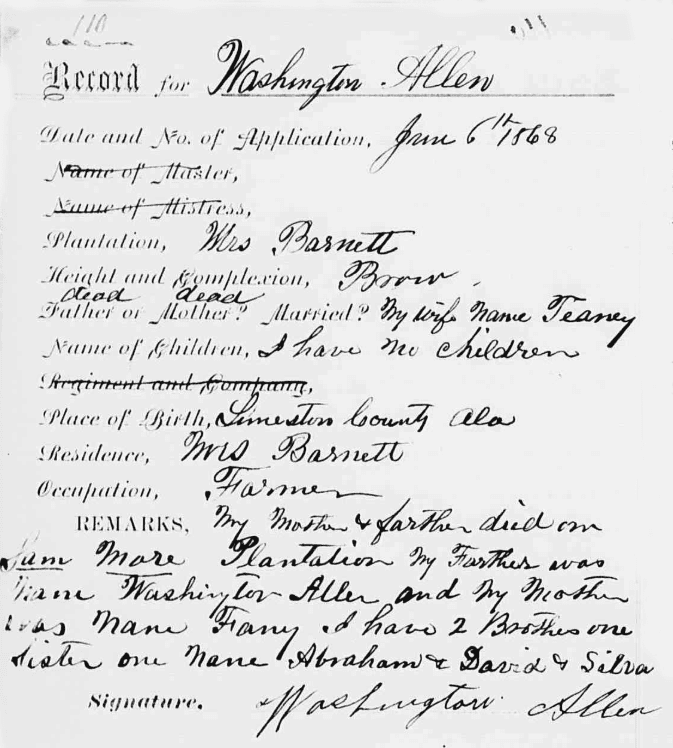 110
Record for Washington Allen
Date and No. of Application, June 6th 1868
Name of Master,
Name of Mistress,
Plantation, Mrs Barnett
Height and Complexion, Brow
dead dead
Father or Mother? Married? My wife Name Teaney
Name of Children, I have no children
Regiment and Company,
Place of Birth, Limeston County Ala
Residence, Mrs Barnett
Occupation, Farmer
REMARKS, My Mother & farther died on
Sam More Plantation My Farther was
Name Washington Allen and My Mother
was Name Fany I have 2 Brothes one
Sister one Name Abraham & David & Silva
Signature. Washington Allen